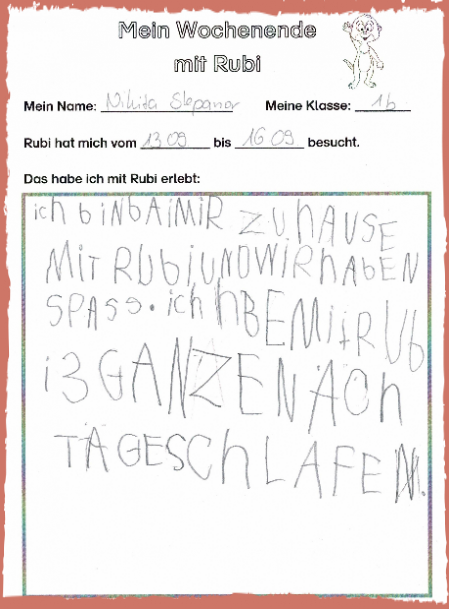 Mein Wochenende
mit Rubi
Mein Name: Nikita Stepanov Meine Klasse: 1b
Rubi hat mich vom 13 09 bis 16 09 besucht.
Das habe ich mit Rubi erlebt:
ich biNbAiMiR ZUhAUSE
MiT RUbiUNDWiRhAbEN
SPASS. ich hBEMitRUb
i3GANZENAch
TAGESChLAFEN.